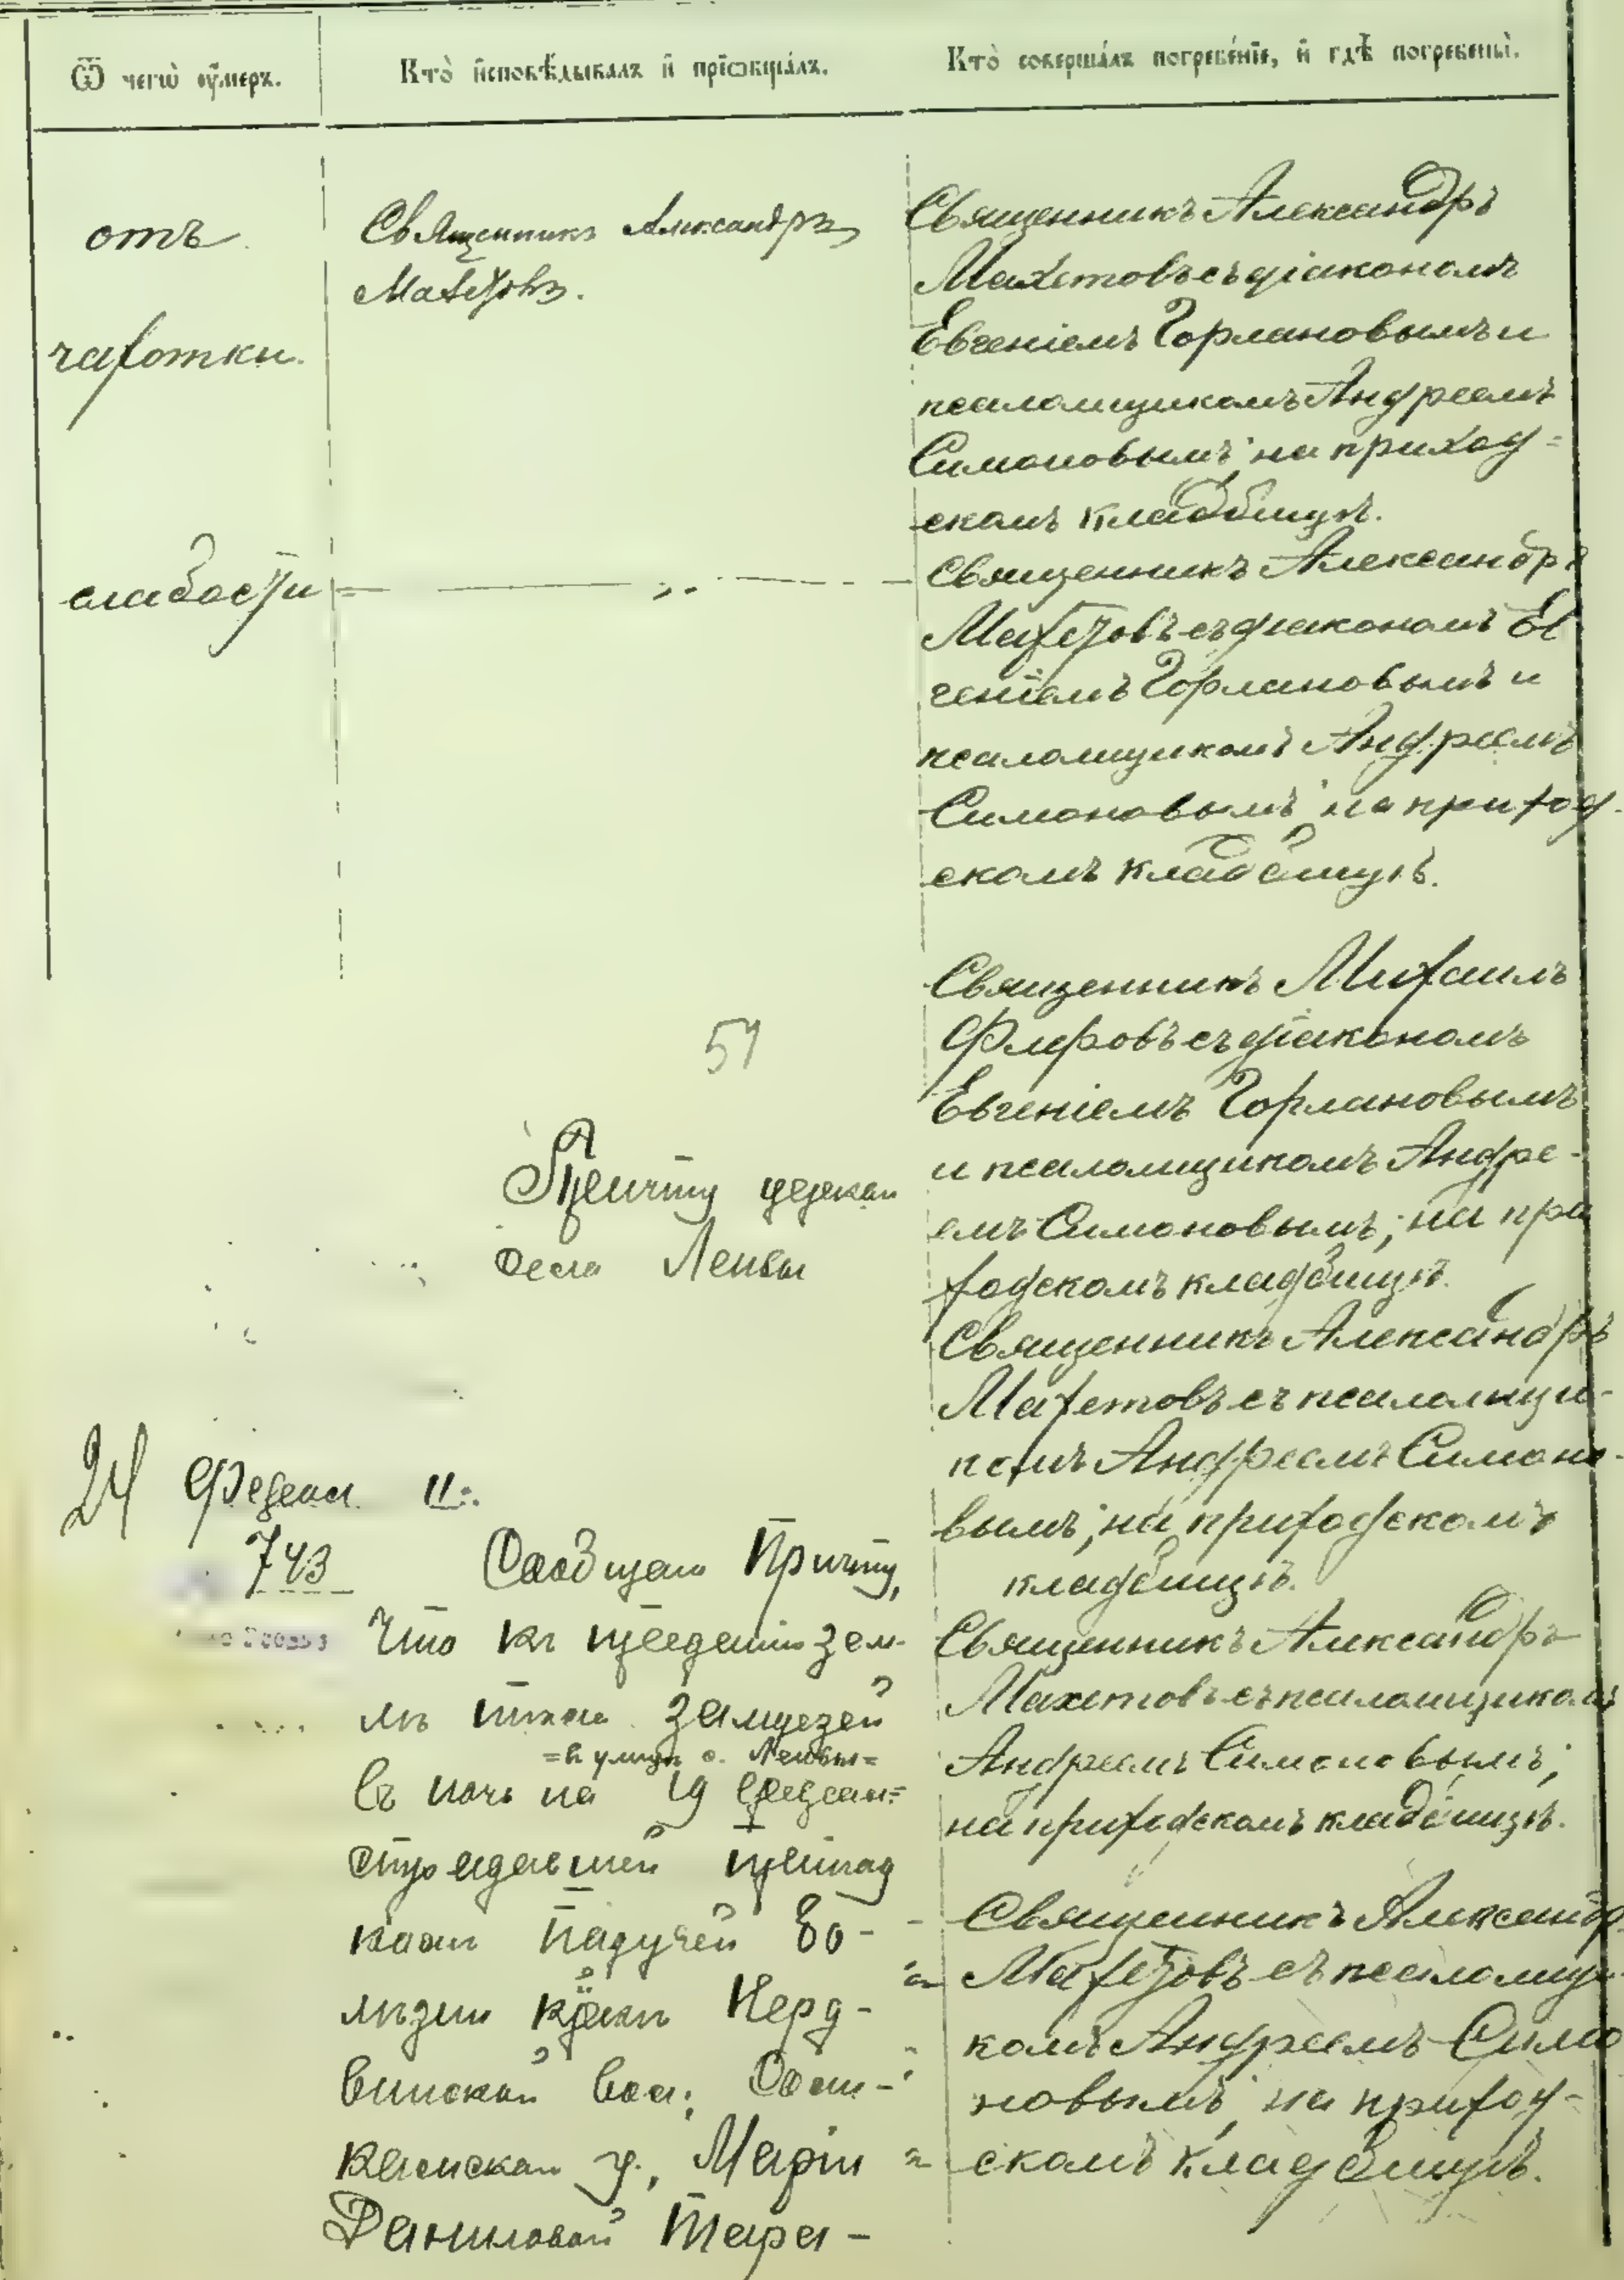 Ѿ чегѡ ᲂу҆́мерх.
Кто̀ и҆сповѣ́дывалъ и҆ прїѡбщалъ.
Кто̀ соверша́лъ погребе́нїе, и҆ гдѣ̀ погребены̀.
отъ
чахотки.
слабости
Священникъ Александръ
Махетовъ.
Священникъ Александръ
Махетовъ съ діакономъ
Евгеніемъ Горлановымъ и
псаломщикомъ Андреемъ
Симоновымъ; на приход=
скомъ кладбищѣ.
Священникъ Александръ
Махетовъ съ діакономъ Ев
геніемъ Горлановымъ и
псаломщикомъ Андреемъ
Симоновымъ; на приход-
скомъ кладбищѣ.
Священникъ Михаилъ
Флеровъ съ діакономъ
Евгеніемъ Горлановымъ
и псаломщикомъ Андре-
емъ Симоновымъ; на при
ходскомъ кладбищѣ.
Священникъ Александръ
Махетовъ съ псаломщи-
комъ Андреемъ Симоно-
вымъ; на приходскомъ
кладбищѣ.
Священникъ Александръ
Махетовъ съ псаломщикомъ
Андреемъ Симоновымъ;
на приходскомъ кладбищѣ.
Священникъ Александр
Махетовъ съ псаломщи-
комъ Андреемъ Симо
новымъ; на приход-
скомъ кладбищѣ.
Причту церкви
села Ленвы
24 Февраля 11:.
743
Сообщаю Причту,
что къ преданію зем-
лѣ тѣла замерзей
=въ улицѣ с. Ленвы=
въ ночь на 19 Февраля=
страдавшей припад
ками падучей бо-
лѣзни кр-ки Нерд-
винской вол., Соли-
камскаго у., Маріи
Даниловой Тара-